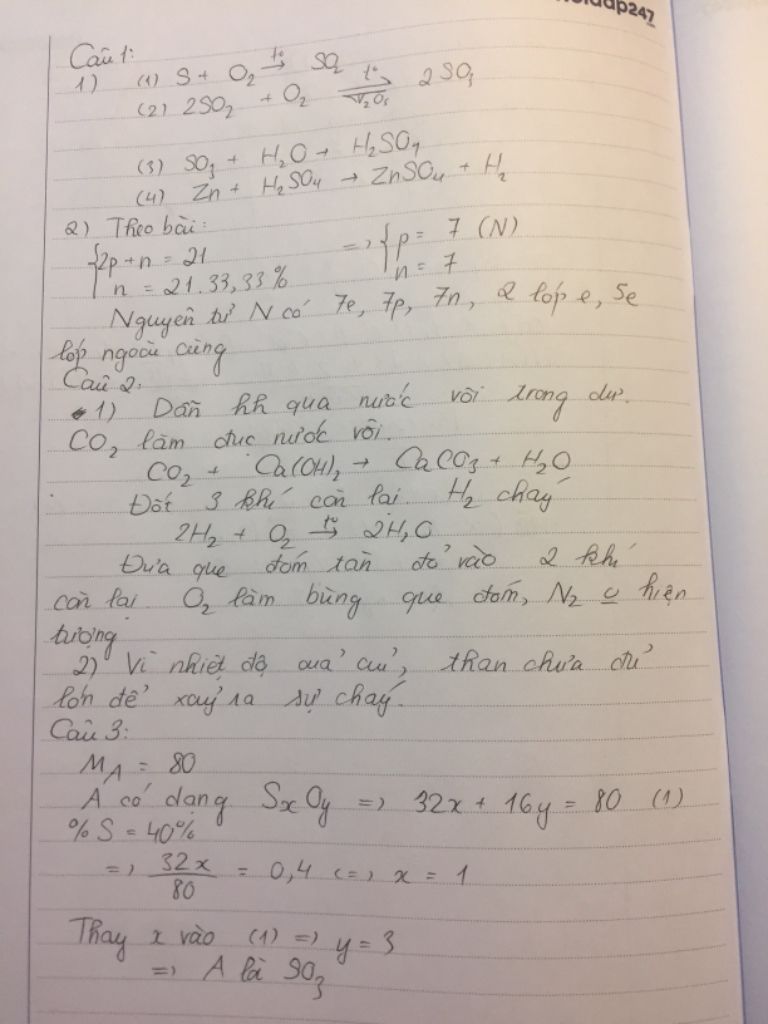 hoidap247
Câu 1:
1) (1) S + O₂ →(t°) SO₂
(2) 2SO₂ + O₂ ⇌(t°, V₂O₅) 2SO₃
(3) SO₃ + H₂O → H₂SO₄
(4) Zn + H₂SO₄ → ZnSO₄ + H₂
2) Theo bài:
{2p+n = 21 => {p = 7 (N)
n = 21.33,33% n = 7
Nguyên tử N có 7e, 7p, 7n, 2 lớp e, 5e
lớp ngoài cùng
Câu 2:
1) Dẫn hh qua nước vôi trong dư.
CO₂ làm đục nước vôi.
CO₂ + Ca(OH)₂ → CaCO₃ + H₂O
Đốt 3 khí còn lại. H₂ cháy
2H₂ + O₂ →(t°) 2H₂O
Đưa que đóm tàn đỏ vào 2 khí
còn lại. O₂ làm bùng que đóm, N₂ hiện
tượng
2) Vì nhiệt độ của củi, than chưa đủ
lớn để xảy ra sự cháy.
Câu 3:
M_A = 80
A có dạng SxOy => 32x + 16y = 80 (1)
%S = 40%
=> 32x/80 = 0,4 <=> x = 1
Thay x vào (1) => y = 3
=> A là SO₃